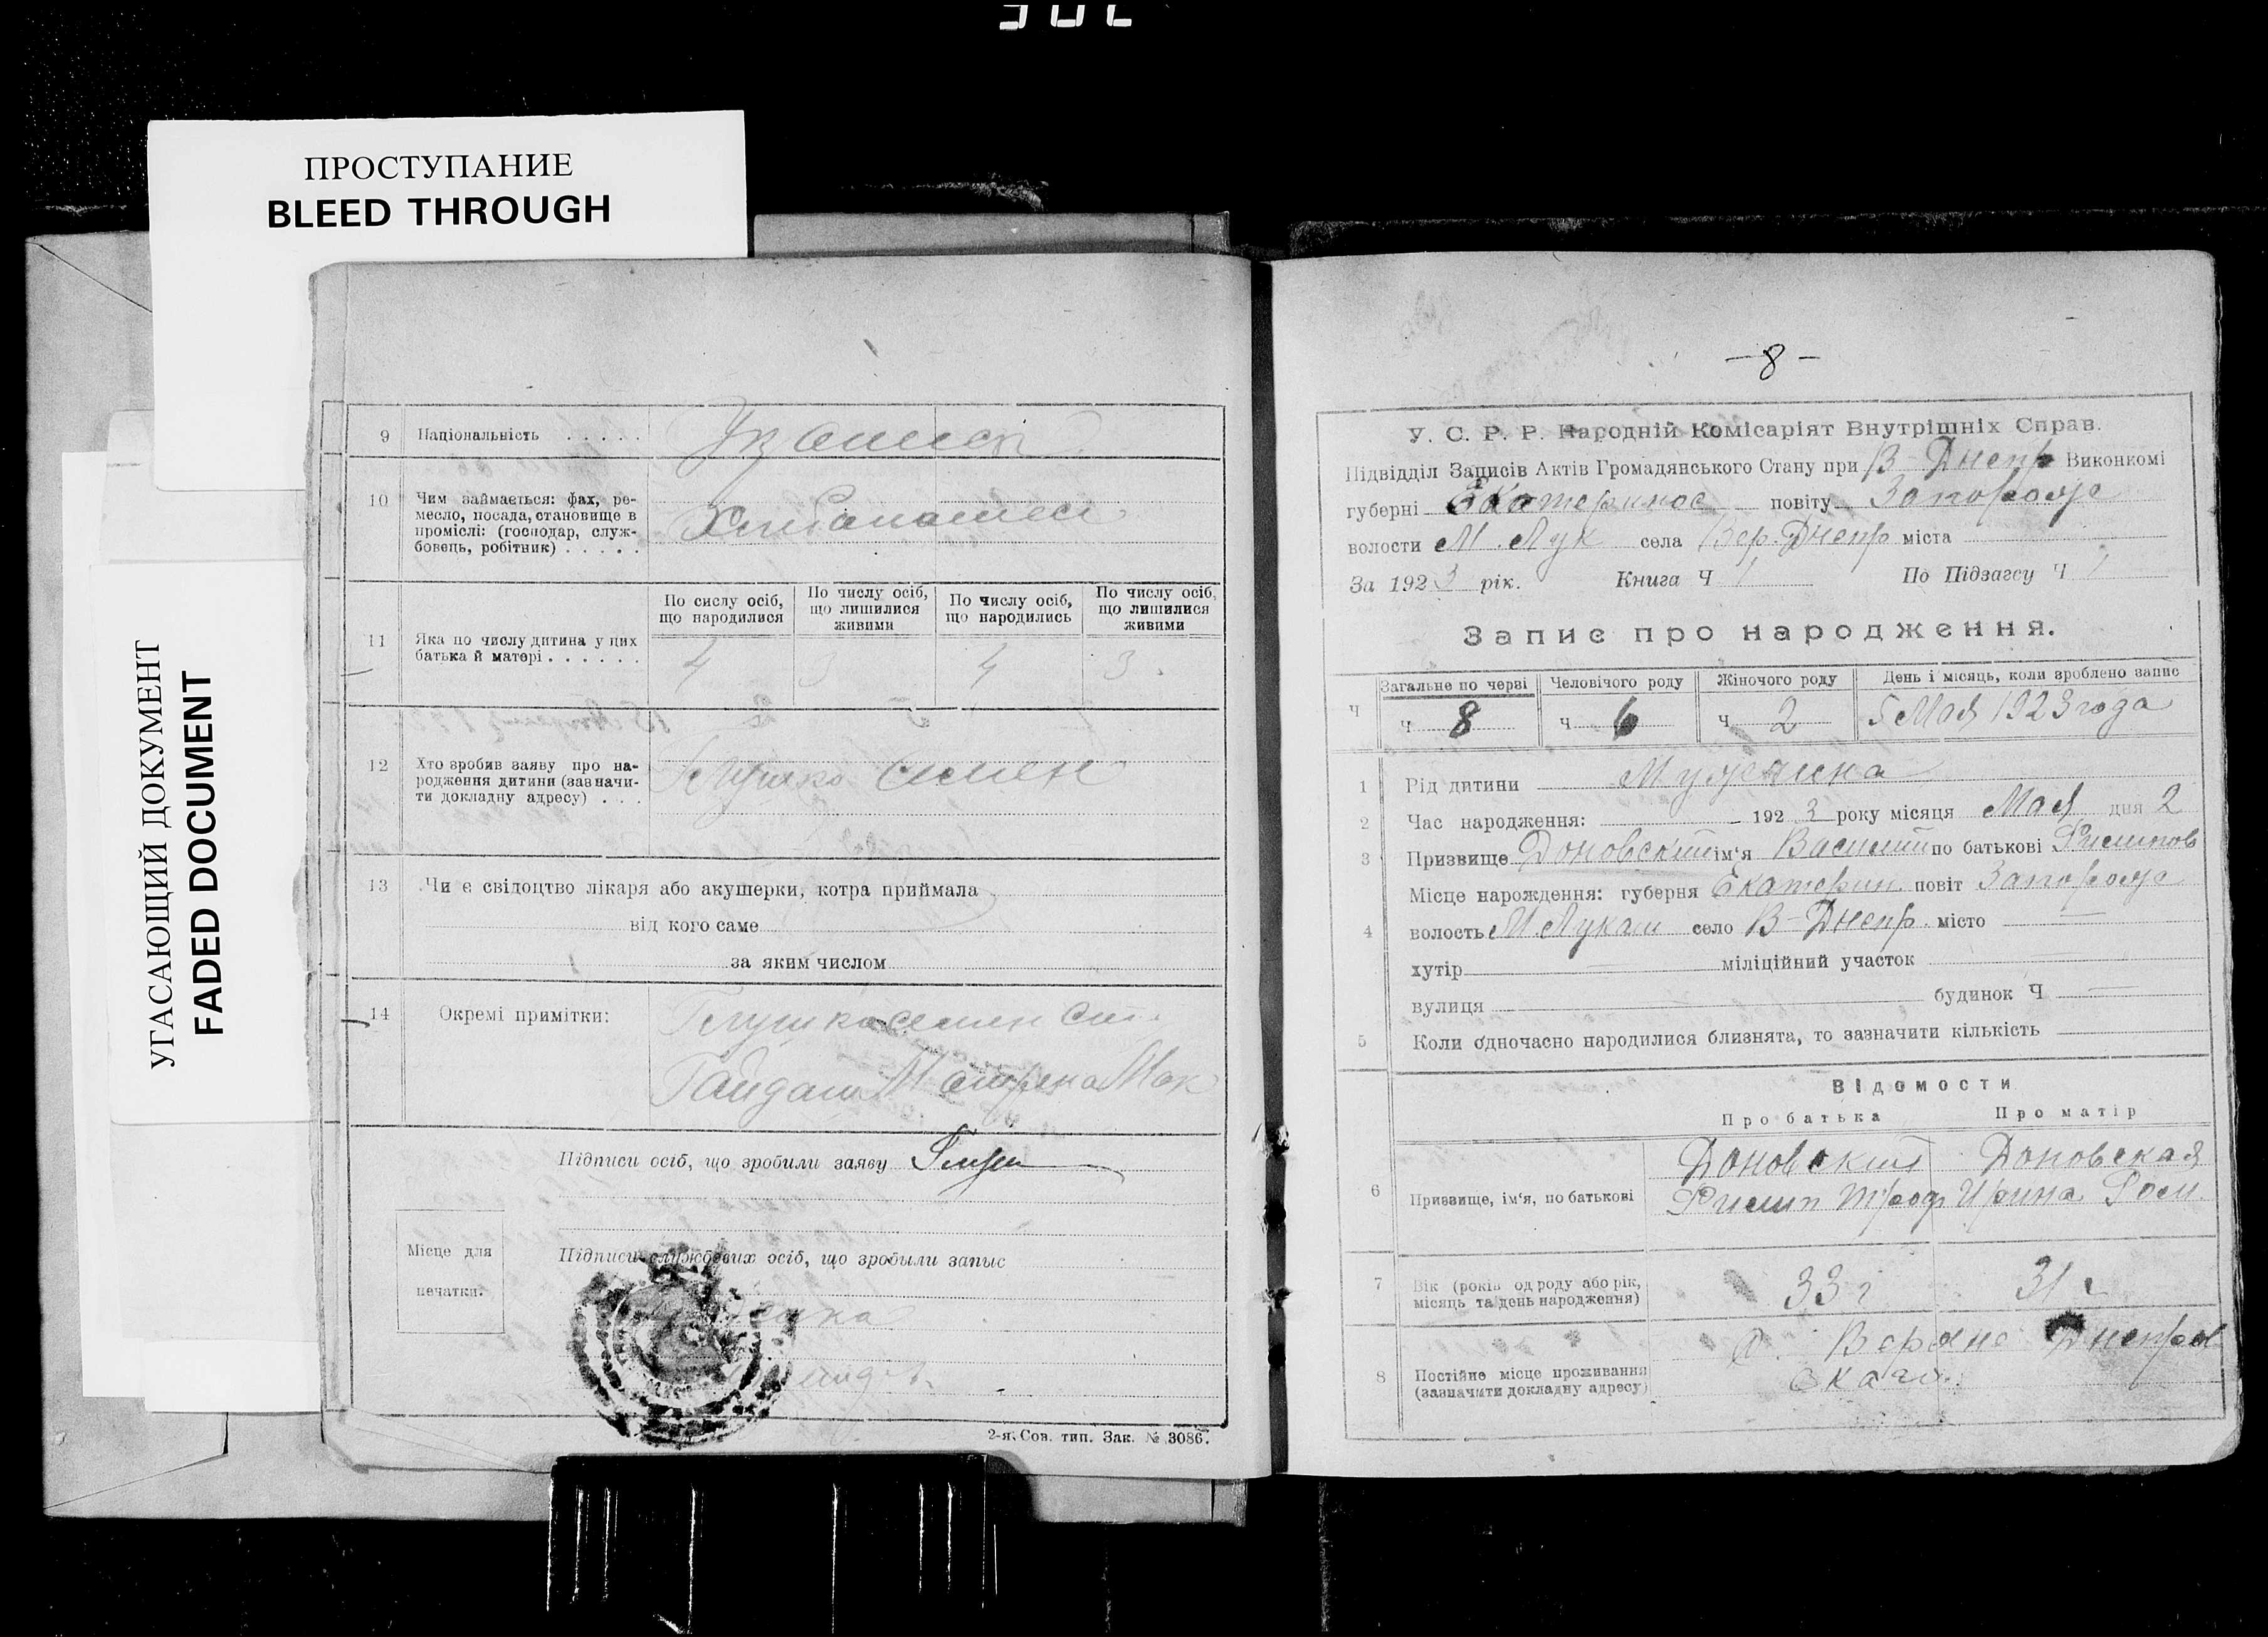 ПРОСТУПАНИЕ
BLEED THROUGH
УГАСАЮЩИЙ ДОКУМЕНТ
FADED DOCUMENT
9 Національність . . . . .
10 Чим займається: фах, ре-
месло, посада, становище в
промислі: (господар, служ-
бовець, робітник) . . . . .
По сислу осіб, що народилися
По числу осіб, що лишилися живими
По числу осіб, що народились
По числу осіб, що лишилися живими
11 Яка по числу дитина у цих
батька й матері . . . . . .
4 3 4 3.
12 Хто зробив заяву про на-
родження дитини (зазначи-
ти докладну адресу) . . .
Глушко Семен
13 Чи є свідоцтво лікаря або акушерки, котра приймала
від кого саме
за яким числом
14 Окремі примітки:
Глушко Семен Ст.
Гайдаш Матрена Мак
Підписи осіб, що зробили заяву
Місце для
печатки.
Підписи службових осіб, що зробили запыс
2-я Сов. тип. Зак. № 3086.
-8-
У. С. Р. Р. Народній Комісаріят Внутрішніх Справ.
Підвідділ Записів Актів Громадянського Стану при В-Днепр Виконкомі
губерні Екатеринос повіту Запорож
волости М. Лук села Вер. Днепр міста
За 1923 рік. Книга Ч 1 По Підзагсу Ч 1
Запис про народження.
Загальне по черві Человічого роду Жіночого роду День і місяць, коли зроблено запис
Ч ч 8 ч 6 ч 2 5 Мая 1923 года
1 Рід дитини Мужчина
2 Час народження: 1923 року місяця Мая дня 2
3 Призвище Доновский ім'я Василий по батькові Филипов
Місце нарождення: губерня Екатерин. повіт Запорож
4 волость М Лукаш село В-Днепр. місто —
хутір — міліційний участок —
вулиця будинок Ч —
5 Коли одночасно народилися близнята, то зазначити кількість
Відомости
Про батька Про матір
Доновский Доновская
6 Призвище, ім'я, по батькові Филип Троф Ирина
7 Вік (років од роду або рік,
місяць та день народження) 33 г 31 г
8 Постійне місце проживання
(зазначити докладну адресу)